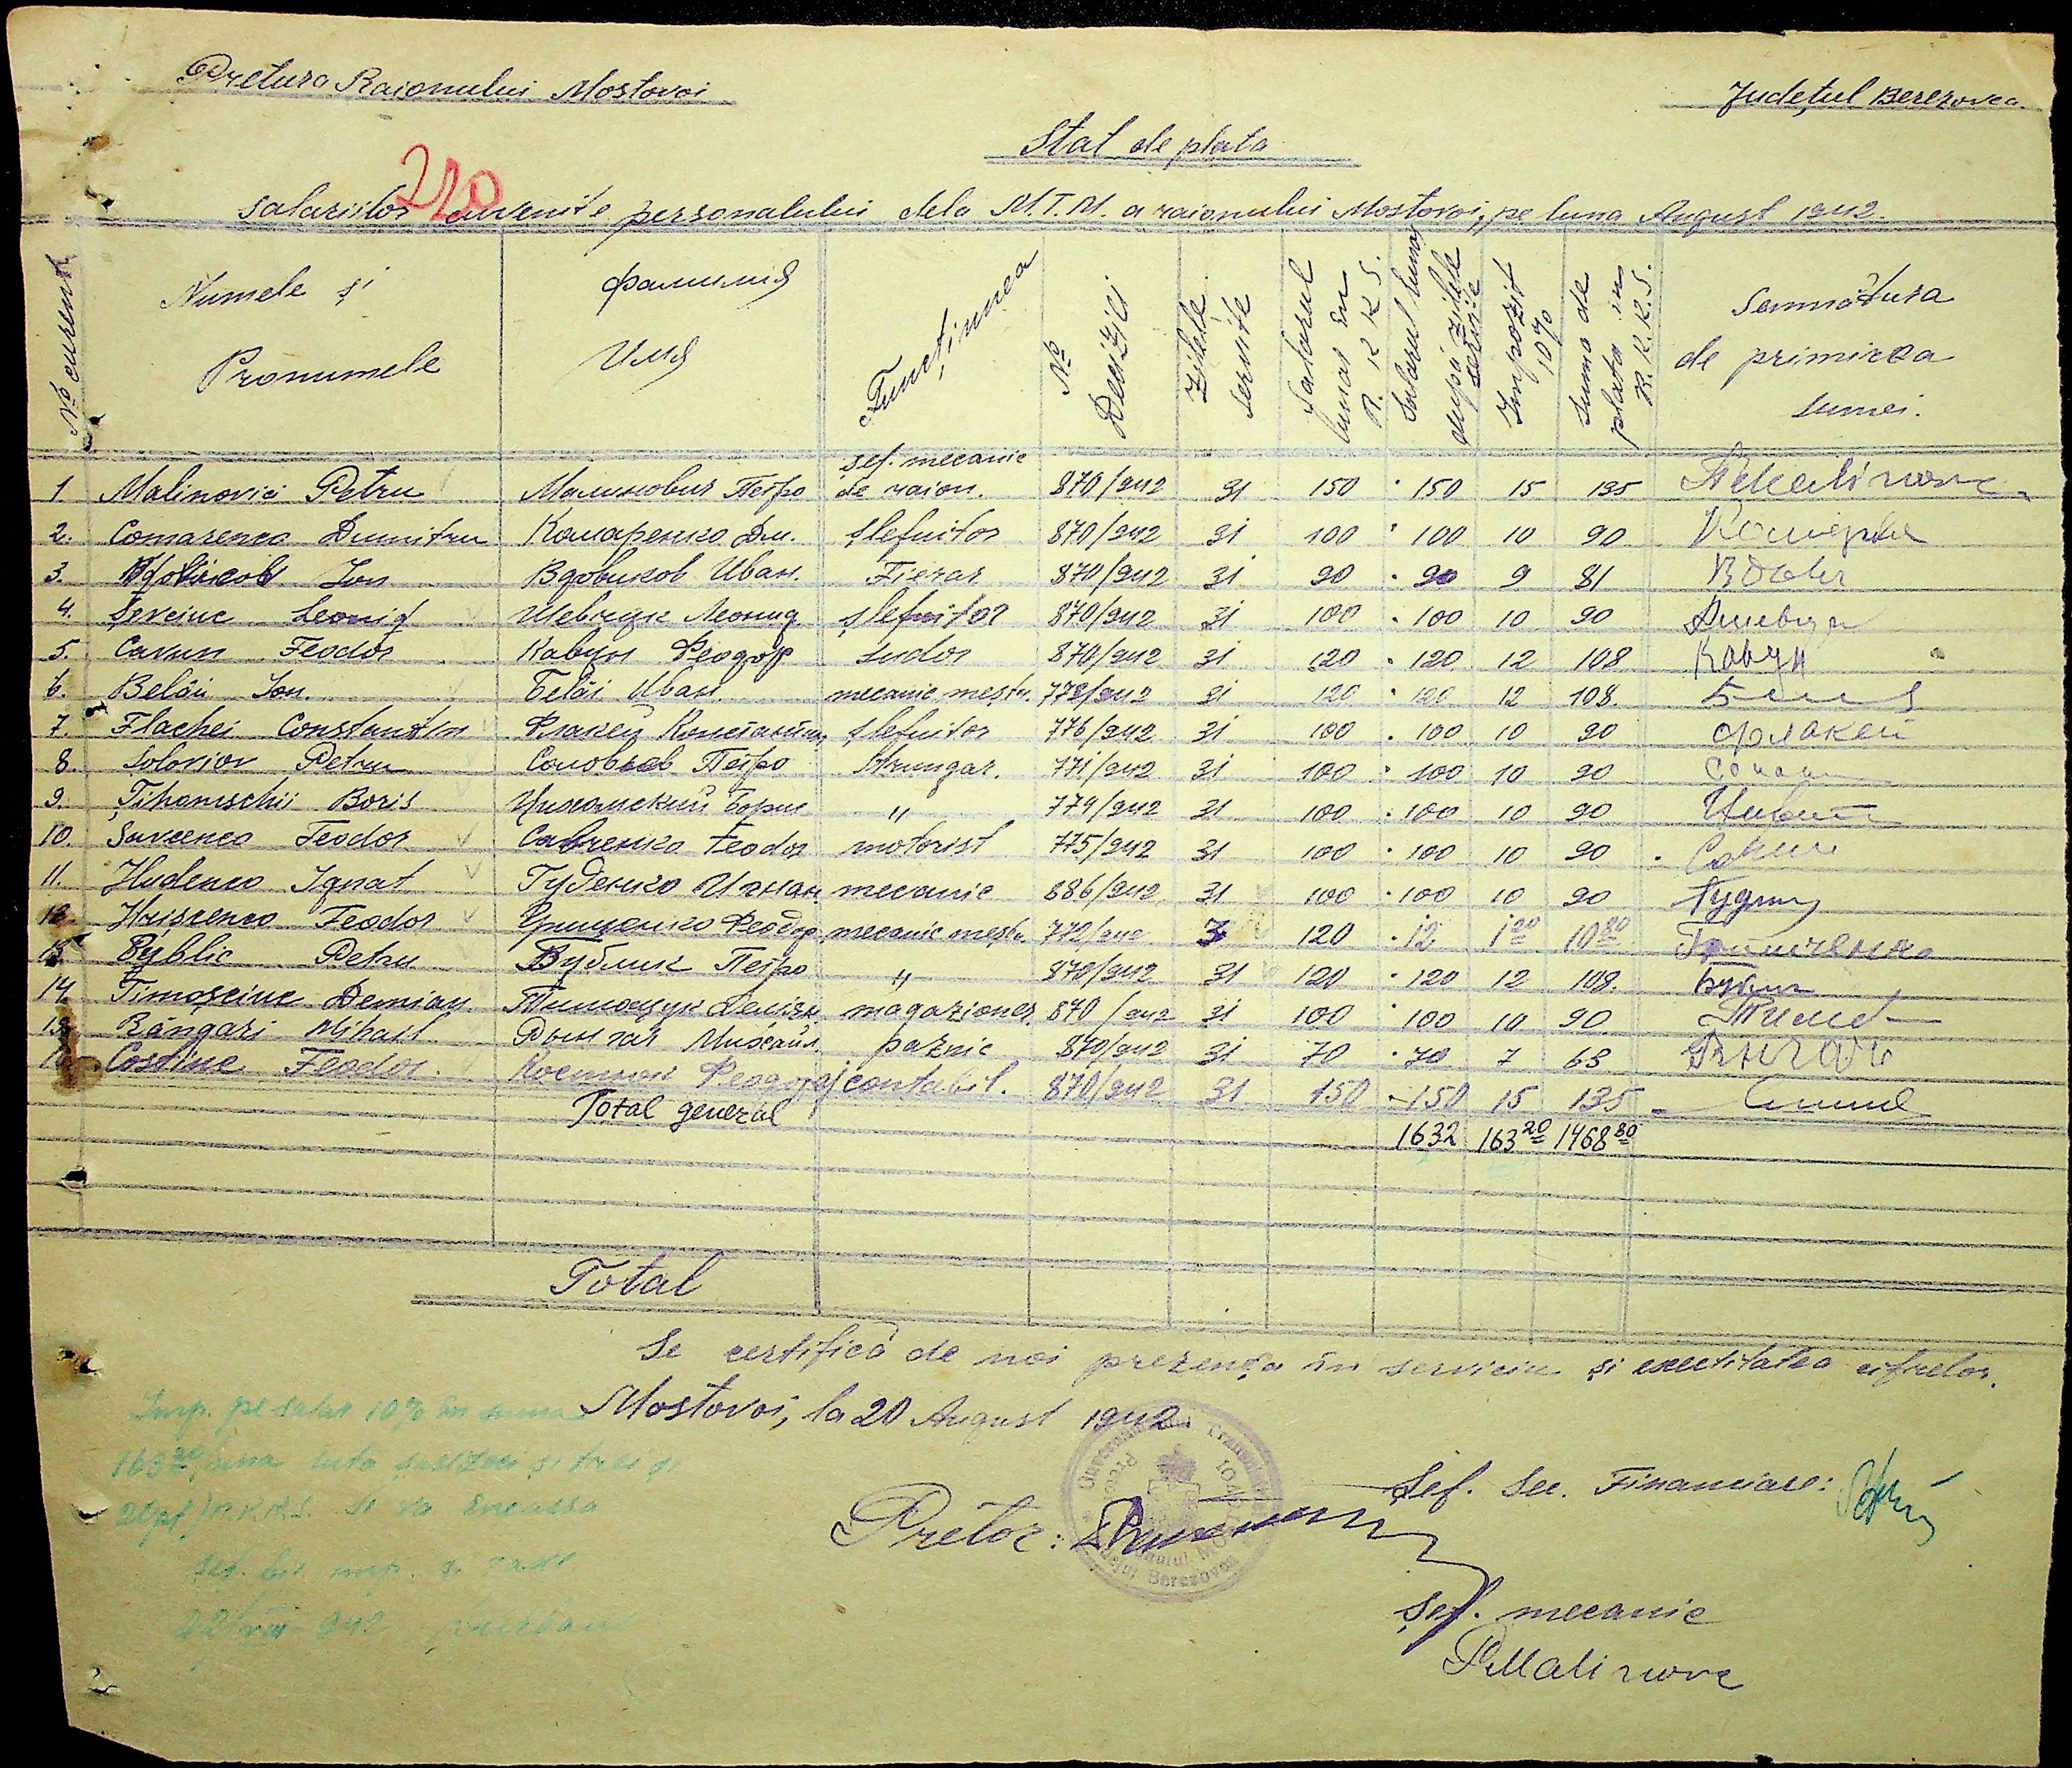 Pretura Raionului Mostovoi
Județul Berezovca.
Stat de plata
210
salariilor cuvenite personalului dela M.T.M. a raionului Mostovoi, pe luna August 1942.
№ curent | Numele și Pronumele | фамилия Имя | Funcținnea | № Decizici | Zilele servite | Salarul lunar în R.K.K.S. | Salarul lunar după zilele servite | Impozit 10% | Suma de plata in R.K.K.S. | Semnătura de primirea sumei.
1. Malinovici Petru Малинович Петро șef. mecanic de raion. 870/942 31 150 150 15 135
2. Comarenco Dumitru Комаренко Дм. șlefuitor 870/942 31 100 100 10 90
3. Vdovicov Ion Вдовиков Иван. Fierar 870/942 31 90 90 9 81
4. Șevciuc Leonid Шевчук Леонид șlefuitor 870/942 31 100 100 10 90
5. Cavun Feodor Кавун Феодор sudor 870/942 31 120 120 12 108 Кавун
6. Belâi Ion. Белâi Иван. mecanic meștr. 778/942 31 120 120 12 108.
7. Flachei Constantin Флакей Константин șlefuitor 776/942 31 100 100 10 90 Флакей
8. Soloviov Petru Соловьев Петро Strungar. 771/942 31 100 100 10 90
9. Țihomschii Boris Цихомский Борис " 779/942 31 100 100 10 90
10. Savcenco Feodor Савченко Feodor motorist 775/942 31 100 100 10 90
11. Hudenco Ignat Гуденко Игнат mecanic 886/942 31 100 100 10 90
12. Hriscenco Feodor Грищенко Феодор mecanic meștr. 772/942 3 120 12 1 20 10 80 Грищенко
13. Bublic Petru Бублик Петро " 870/942 31 120 120 12 108.
14. Timoșciuc Demian Тимощук Демiян. magazioner. 870/942 31 100 100 10 90
15. Rângari Mihail Рынгач Михаил. paznic 870/942 31 70 70 7 63
16. Costiuc Feodor. Костюк Феодор contabil. 870/942 31 150 150 15 135
Total general 1632 163 20 1468 80
Total
Se certifică de noi prezența în serviciu și exectitatea cifrelor.
Mostovoi, la 20 August 1942.
Imp. pe salar 10% în suma
163 20 (una suta șasezeci și trei și
20 pf) R.K.K.S. Se va încassa
Șef. Sec. Financiare:
Pretor:
Șef. mecanic
PMalinovc